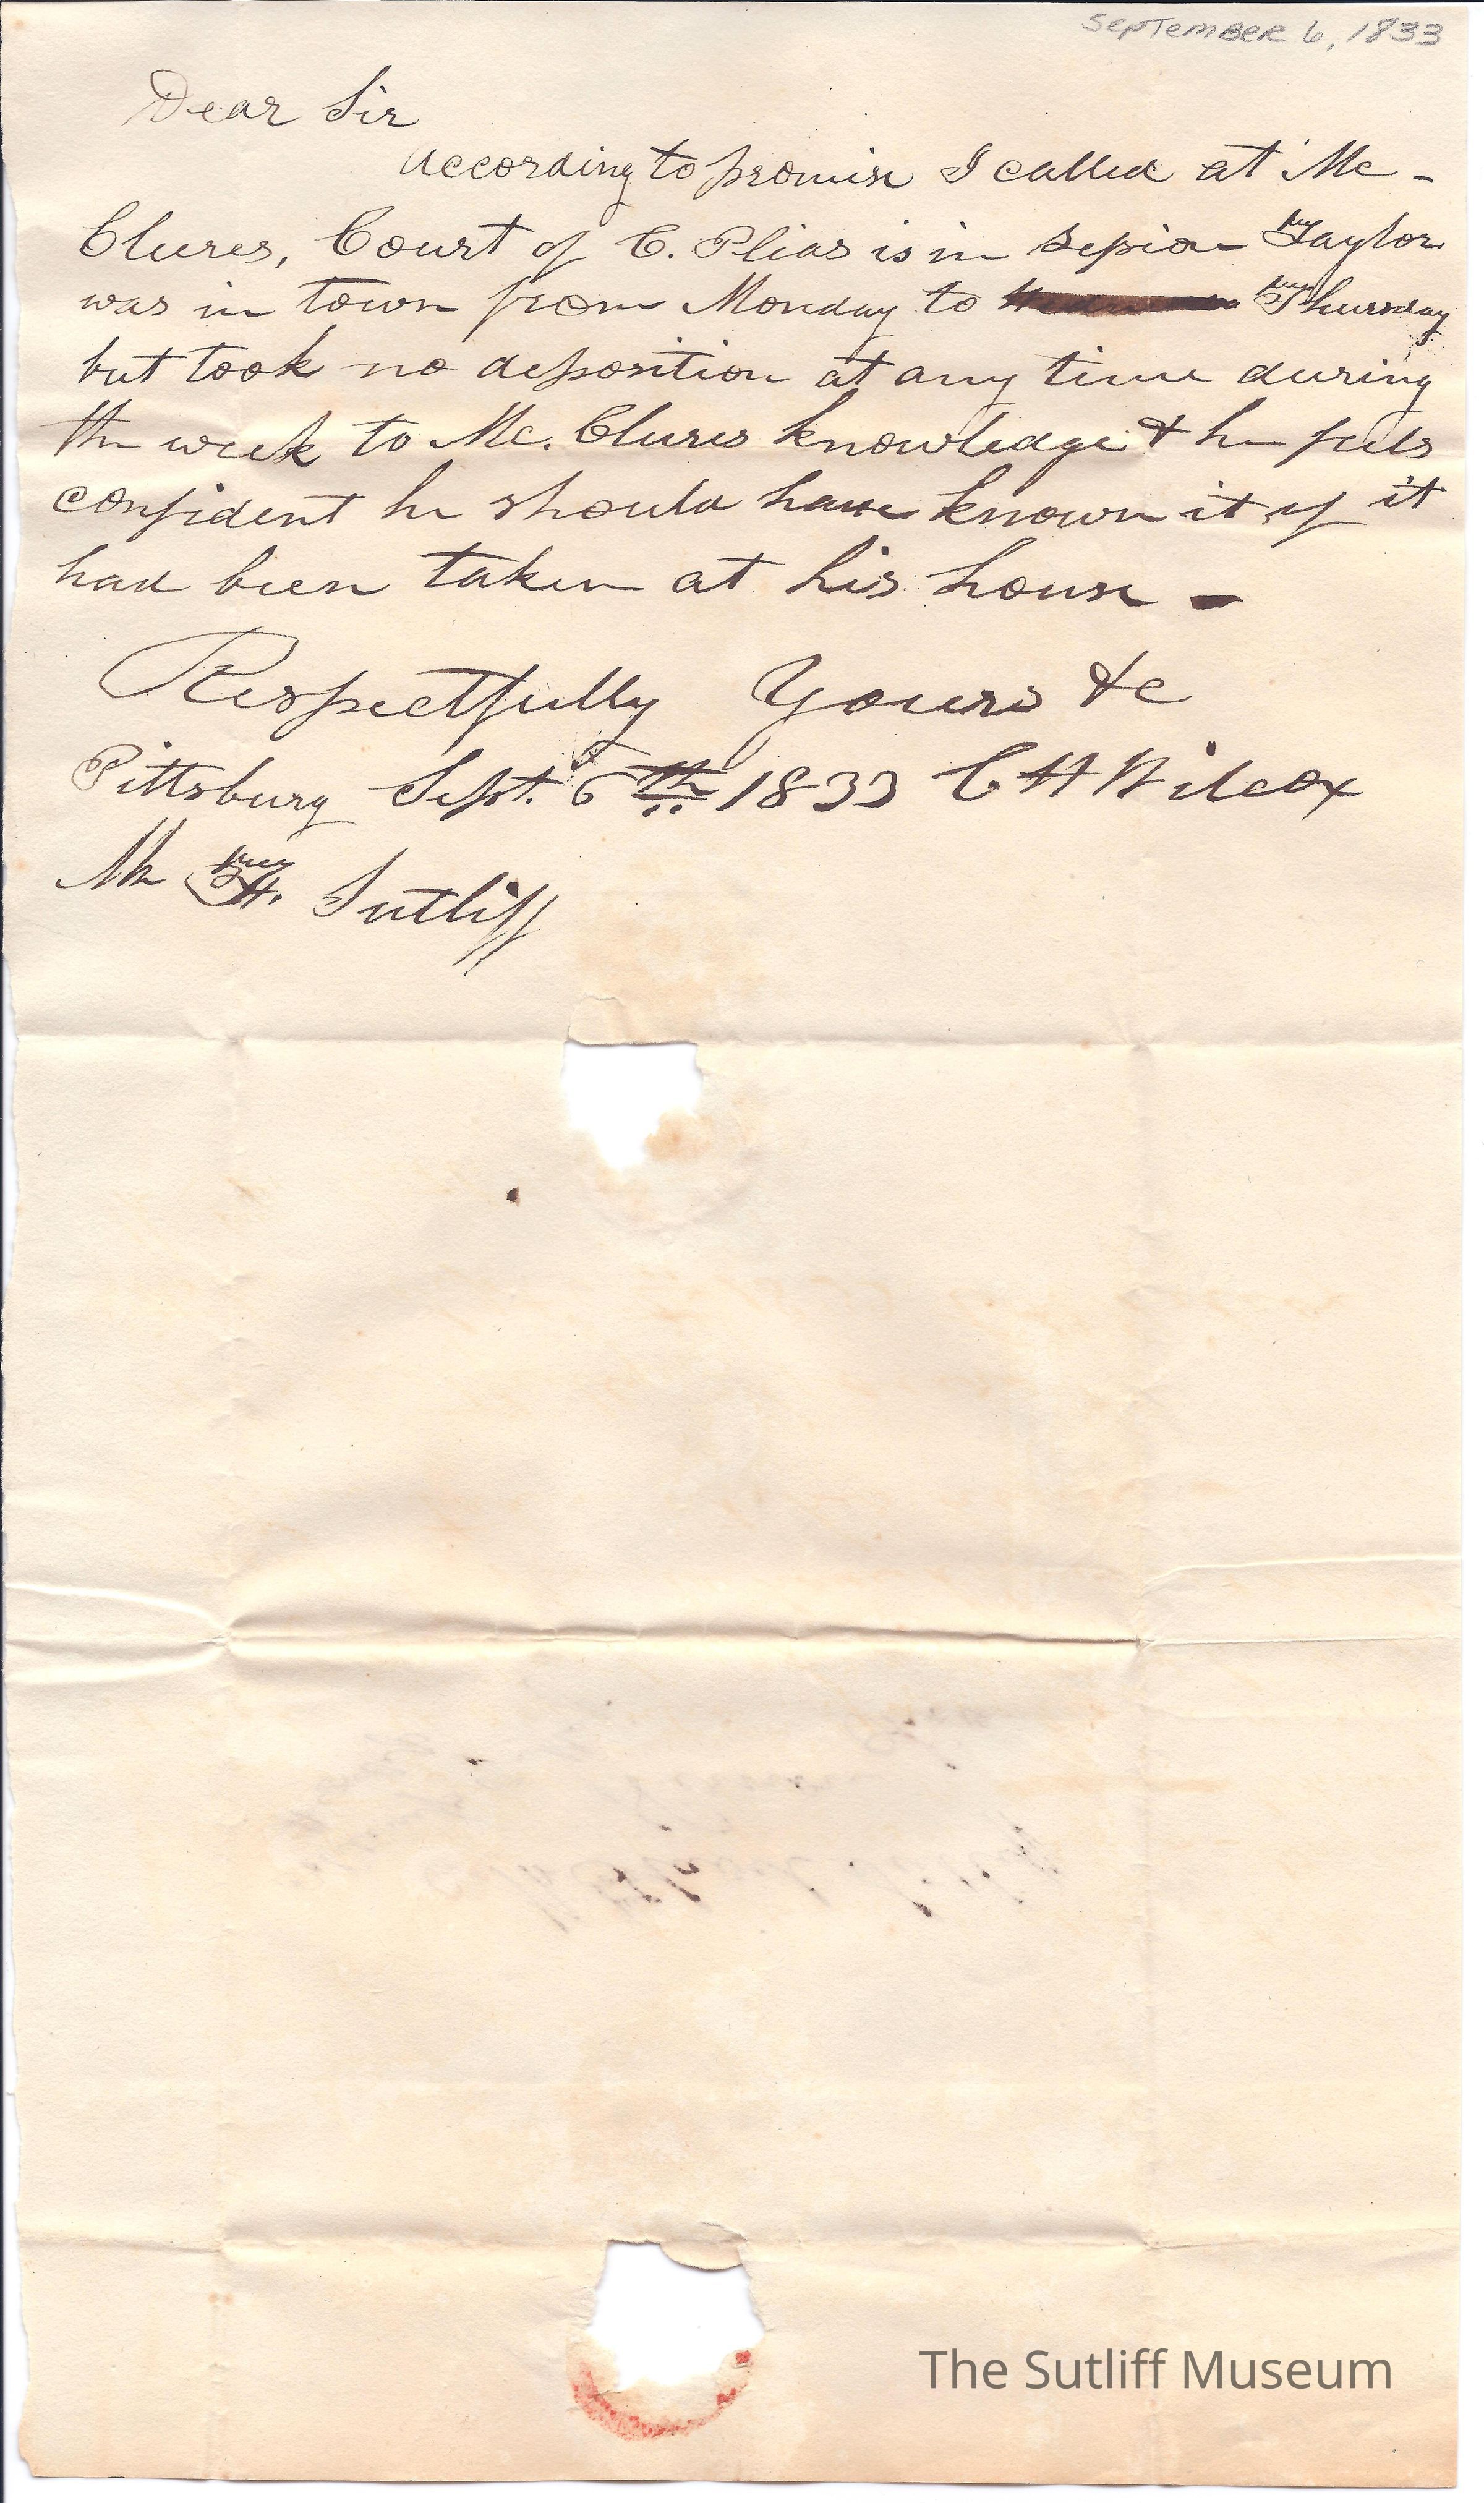 September 6, 1833
Dear Sir
According to promise I called at Mc-
Clures, Court of C. Pleas is in Session Taylor
was in town from Monday to Thursday
but took no deposition at any time during
the week to Mc. Clures knowledge & he feels
confident he should have known it if it
had been taken at his house -
Respectfully Yours &c
Pittsburg Sept. 6th 1833 C H Wilcox
Mr H. Sutliff
The Sutliff Museum